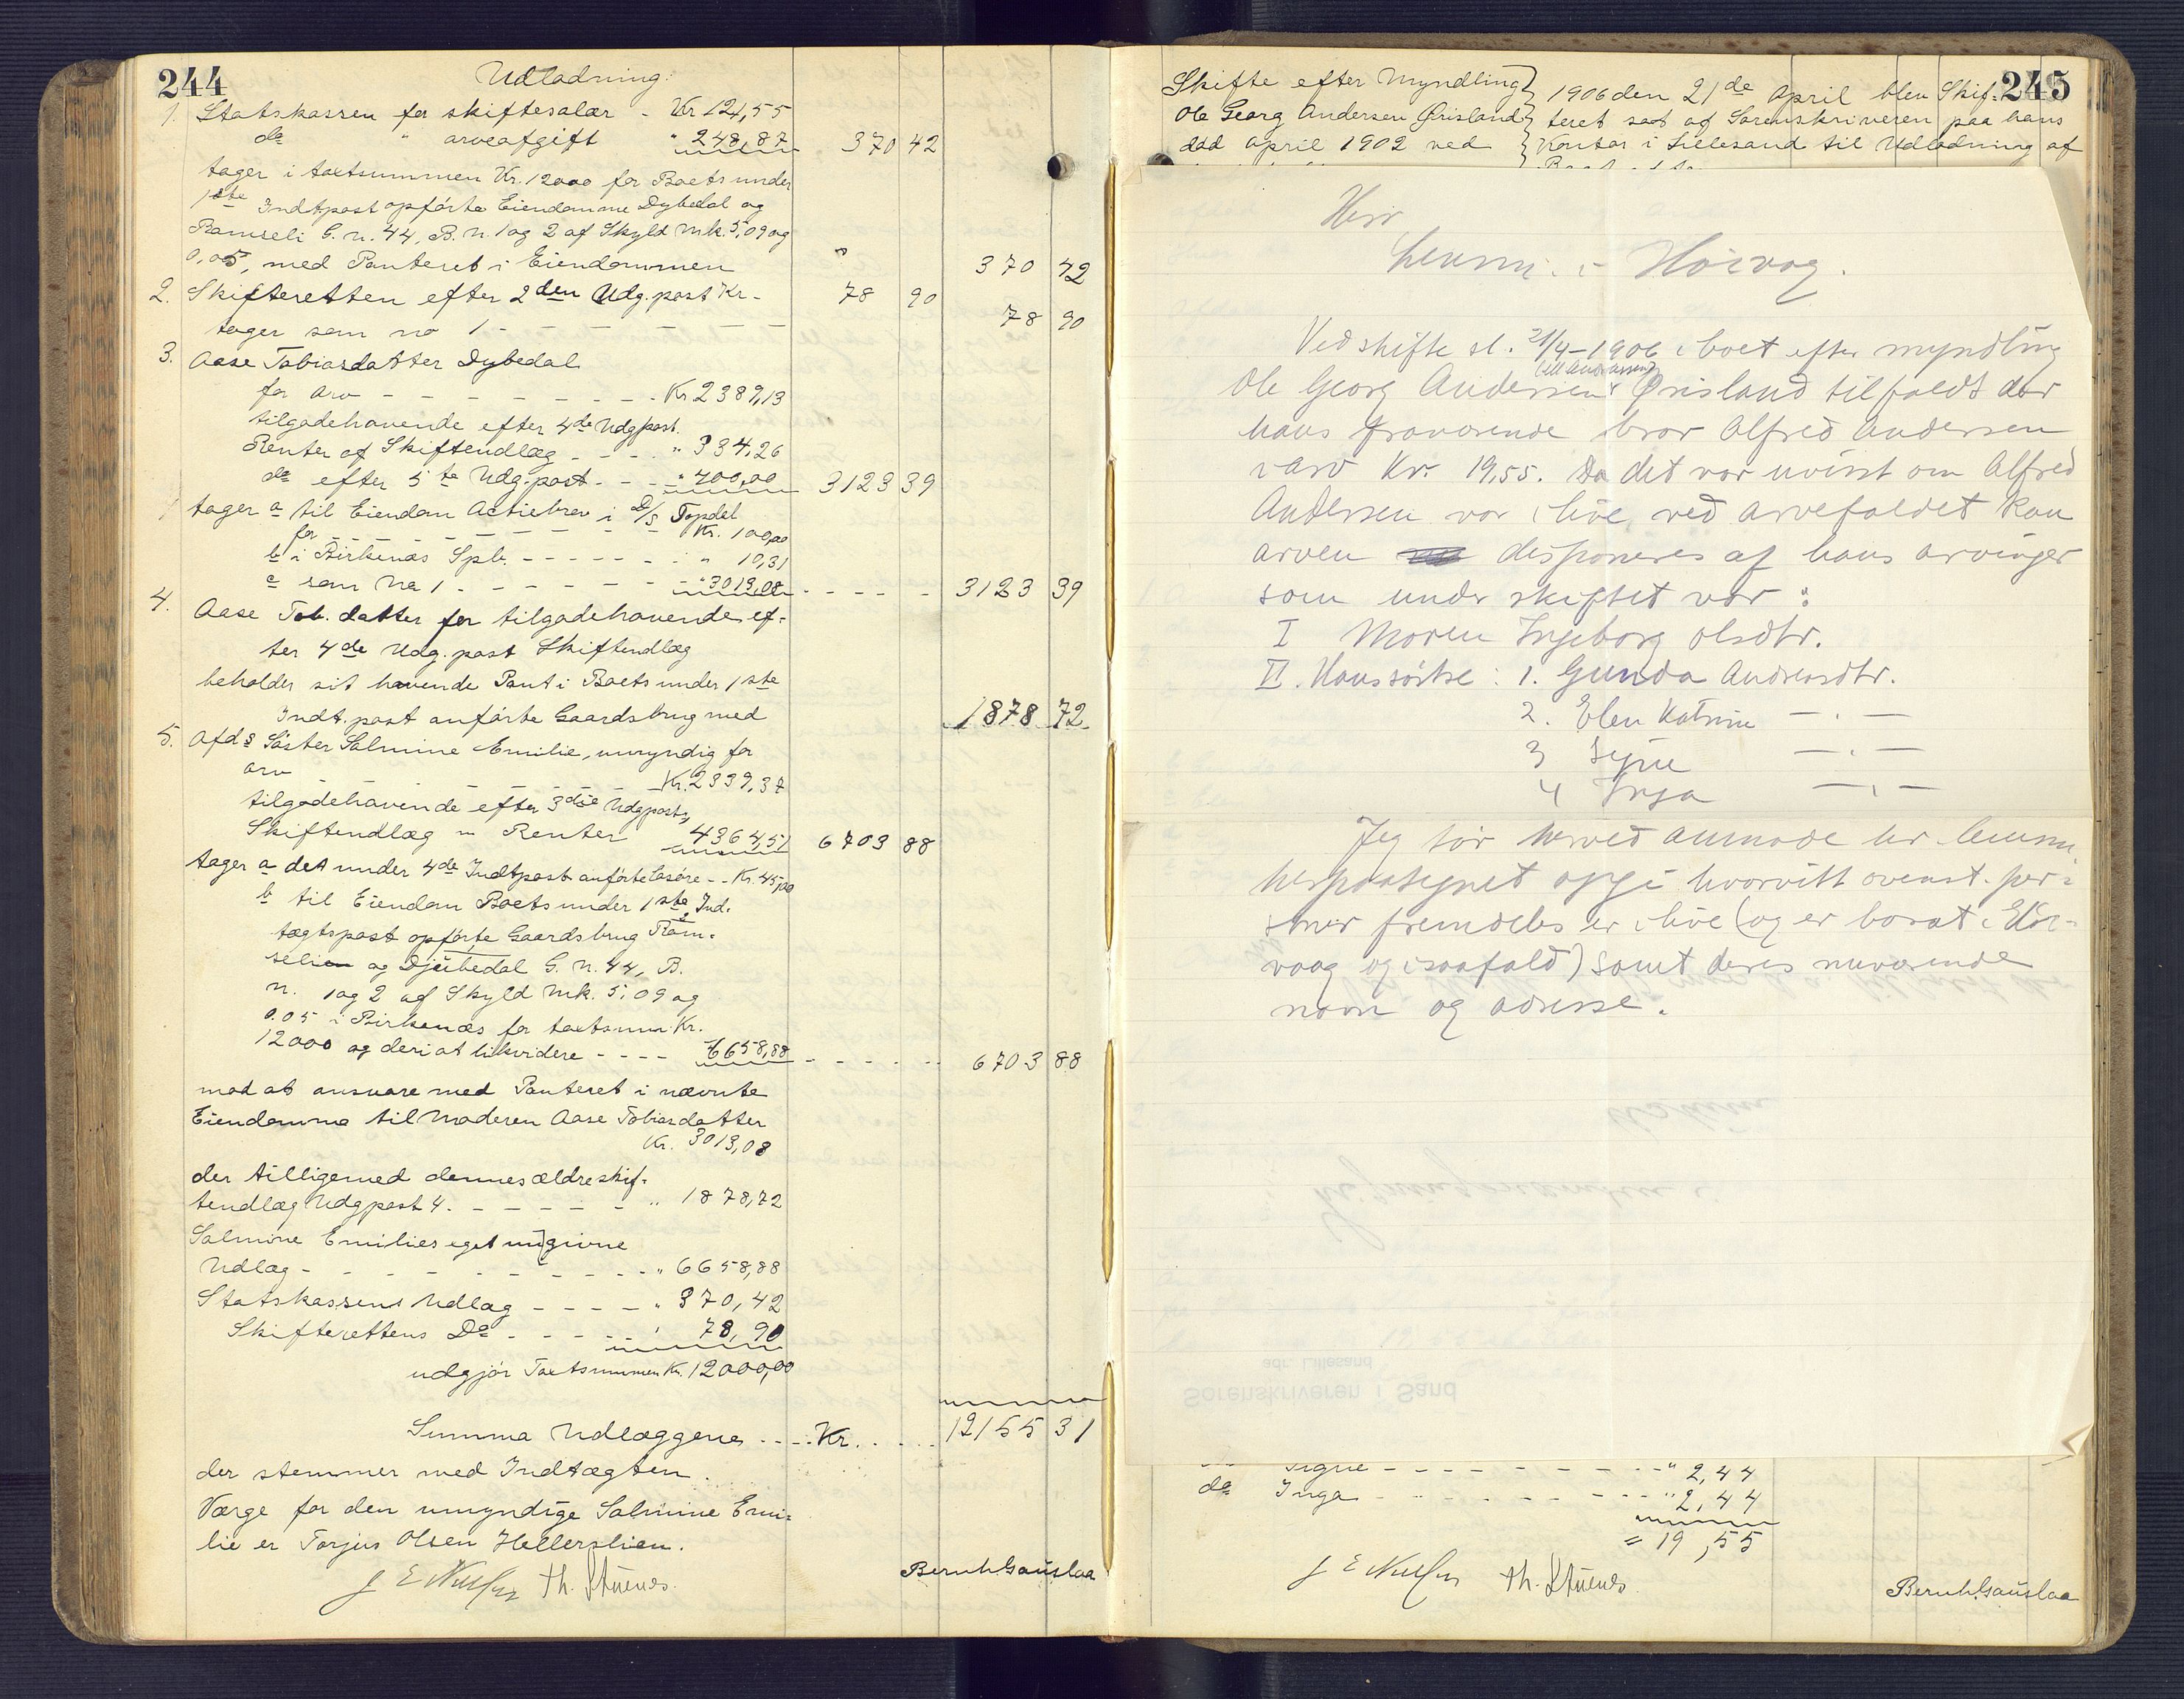 244
Udlodning:
1. Statskassen for skiftesalær - Kr 121,55
do " arveafgift " 248,87 370 42
tager i taxtsummen Kr. 12000 for Boets under
1ste Indtpost opførte Eiendomme Dybedal og
Ramseli G. n. 44, B. n. 1 og 2 af Skyld mk. 5,09 og
0,05, med Panteret i Eiendommen 370 42
2. Skifteretten efter 2den Udg. post Kr - 78 90
tager som no 1 - - - - - - 78 90
3. Aase Tobiasdatter Dybedal
for arv - - - - - - - - Kr 2389,13
tilgodehavende efter 4de Udgpost
Renter af Skifteudlæg - - - - " 334,26
do efter 5te Udg. post - - - " 400,00 3123 39
tager a til Eiendom Actiebrev i D/S Topdal
for - - - - - - - Kr. 100,00
b i Birkenæs Spb. - - - - - " 10,31
c som No 1 - - - - - - " 3013,08 - - - - 3123 39
4. Aase Tob. datter for tilgodehavende ef-
ter 4de Udg. post Skifteudlæg
beholder sit havende Pant i Boets under 1ste
Indt. post anførte Gaardsbrug med 1878 72
5. Afds Søster Salmine Emilie, umyndig for
arv - - - - - - - Kr. 2339,37
tilgodehavende efter 3die Udgpost,
Skifteudlæg m Renter 4364,51 6703 88
tager a det under 4de Indtpost anførte Løsøre - - Kr. 45,00
b til Eiendom Boets under 1ste Ind.
tægtspost opførte Gaardsbrug Ram-
seli og Djubedal G. n. 44, B.
n. 1 og 2 af Skyld mk. 5,09 og
0.05 i Birkenæs for taxtsum Kr.
12000 og deri at likvidere - - - - 6658,88 - - - - 6703 88
mod at ansvare med Panteret i nævnte
Eiendomme til Moderen Aase Tobiasdatter
Kr. 3013,08
der tilligemed dennes ældre skif-
teudlæg Udgpost 4. - - - - - " 1878,72
Salmine Emilies eget
Udlæg - - - - - - - - - " 6658,88
Statskassens Udlæg - - - - " 370,42
Skifterettens Do - - - - - " 78,90
udgjør Taxtsummen Kr. 12000,00
Summa Udlæggene - - - Kr. - - - 12155 31
der stemmer med Indtægten.
Værge for den umyndige Salmine Emi-
lie er Torjus Olsen Hellerslien.
Th. Stuenes. Bernh. Gauslaa
245
Skifte efter Myndling
Ole Georg Andersen Ørisland
død April 1902 ved
1906 den 21de April blev Skif-
teret sat af Sorenskriveren paa hans
Kontor i Lillesand til Udlodning af
Herr
Lensm. i Høivaag.
Ved skifte sl. 21/4-1906 i boet efter myndling
Ole Georg Andersen Ørisland tilfaldt der
hans fraværende bror Alfred Andersen
i arv Kr. 19,55. Da det var uvisst om Alfred
Andersen var i live ved arvefaldet kan
arven disponeres af hans arvinger
som under skiftet var:
I Moren Ingeborg Olsdtr.
II. Hans søstre: 1. Gunda Andreasdtr.
2. Elen Katrine — . —
3 Syne — . —
4 Inga — . —
Jeg tør herved anmode hr. lensm.
herpaategnet opgi hvorvitt ovenst. per-
soner fremdeles er i live (og er bosat i Høi-
vaag og i saafald) samt deres nuværende
navn og adresse.
Sorenskriveren i Sand
adr. Lillesand
Signe - - - - - - - - " 2,44
do Inga - - - - - - - " 2,44
= 19,55
Th. Stuenes. Bernh. Gauslaa